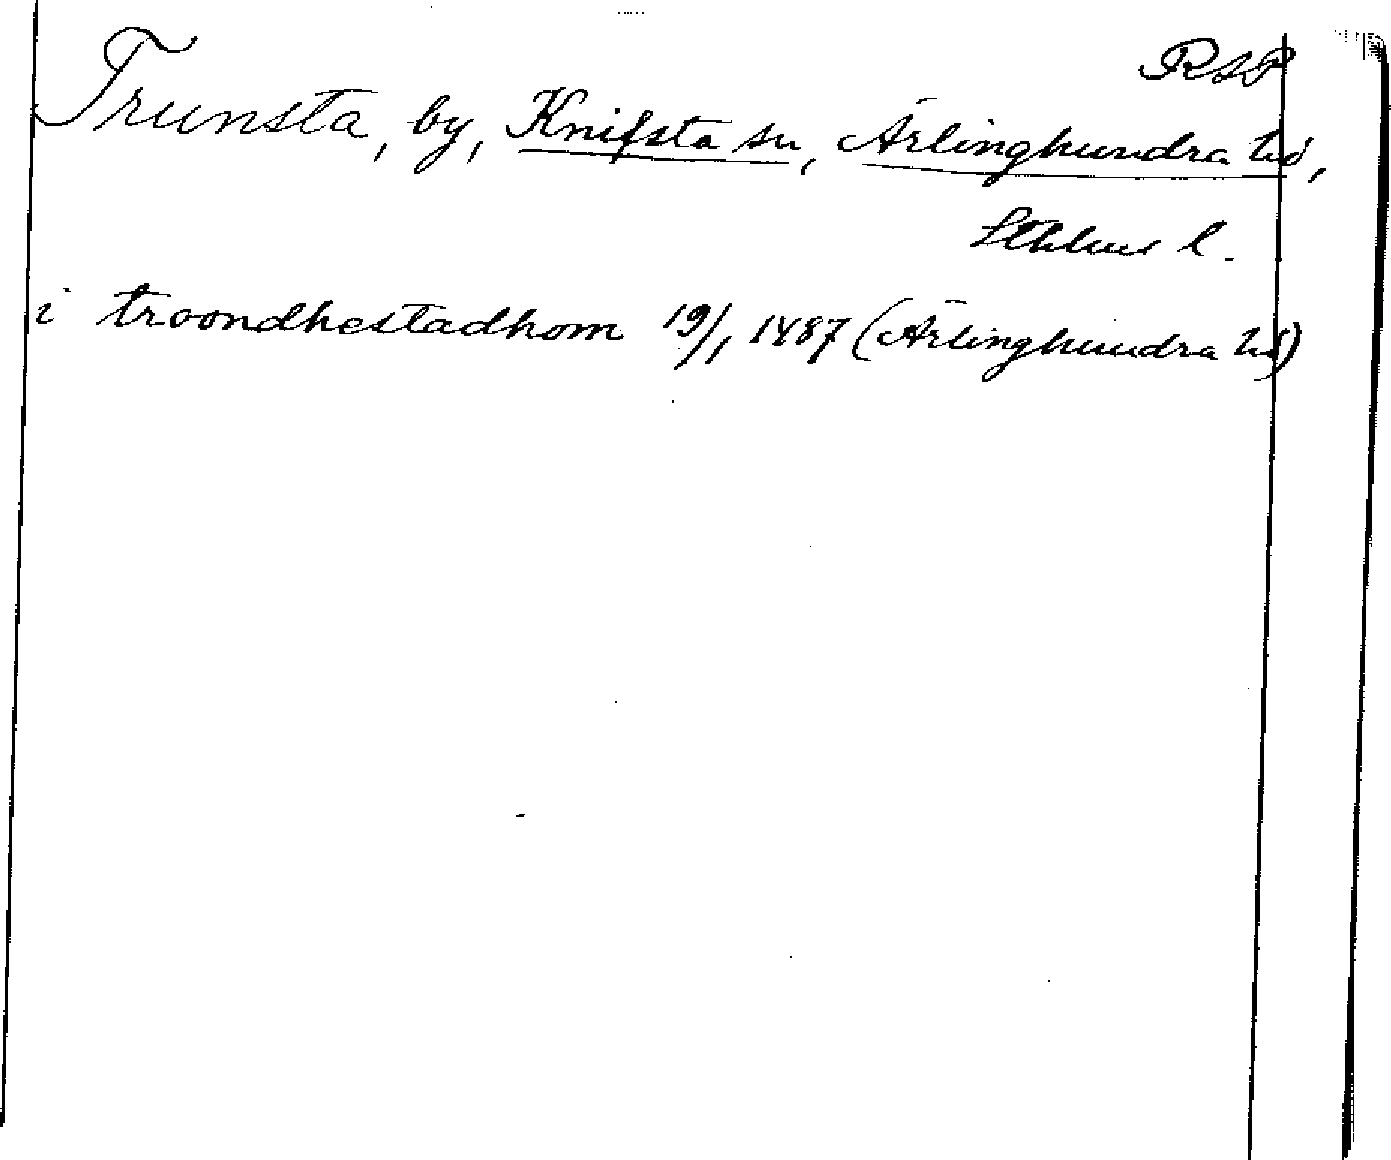 RAP
Trunsta, by, Knifsta sn, Ärlinghundra hd,
Sthlms l.
i troondhestadhom 19/1 1487 (Ärlinghundra hd)